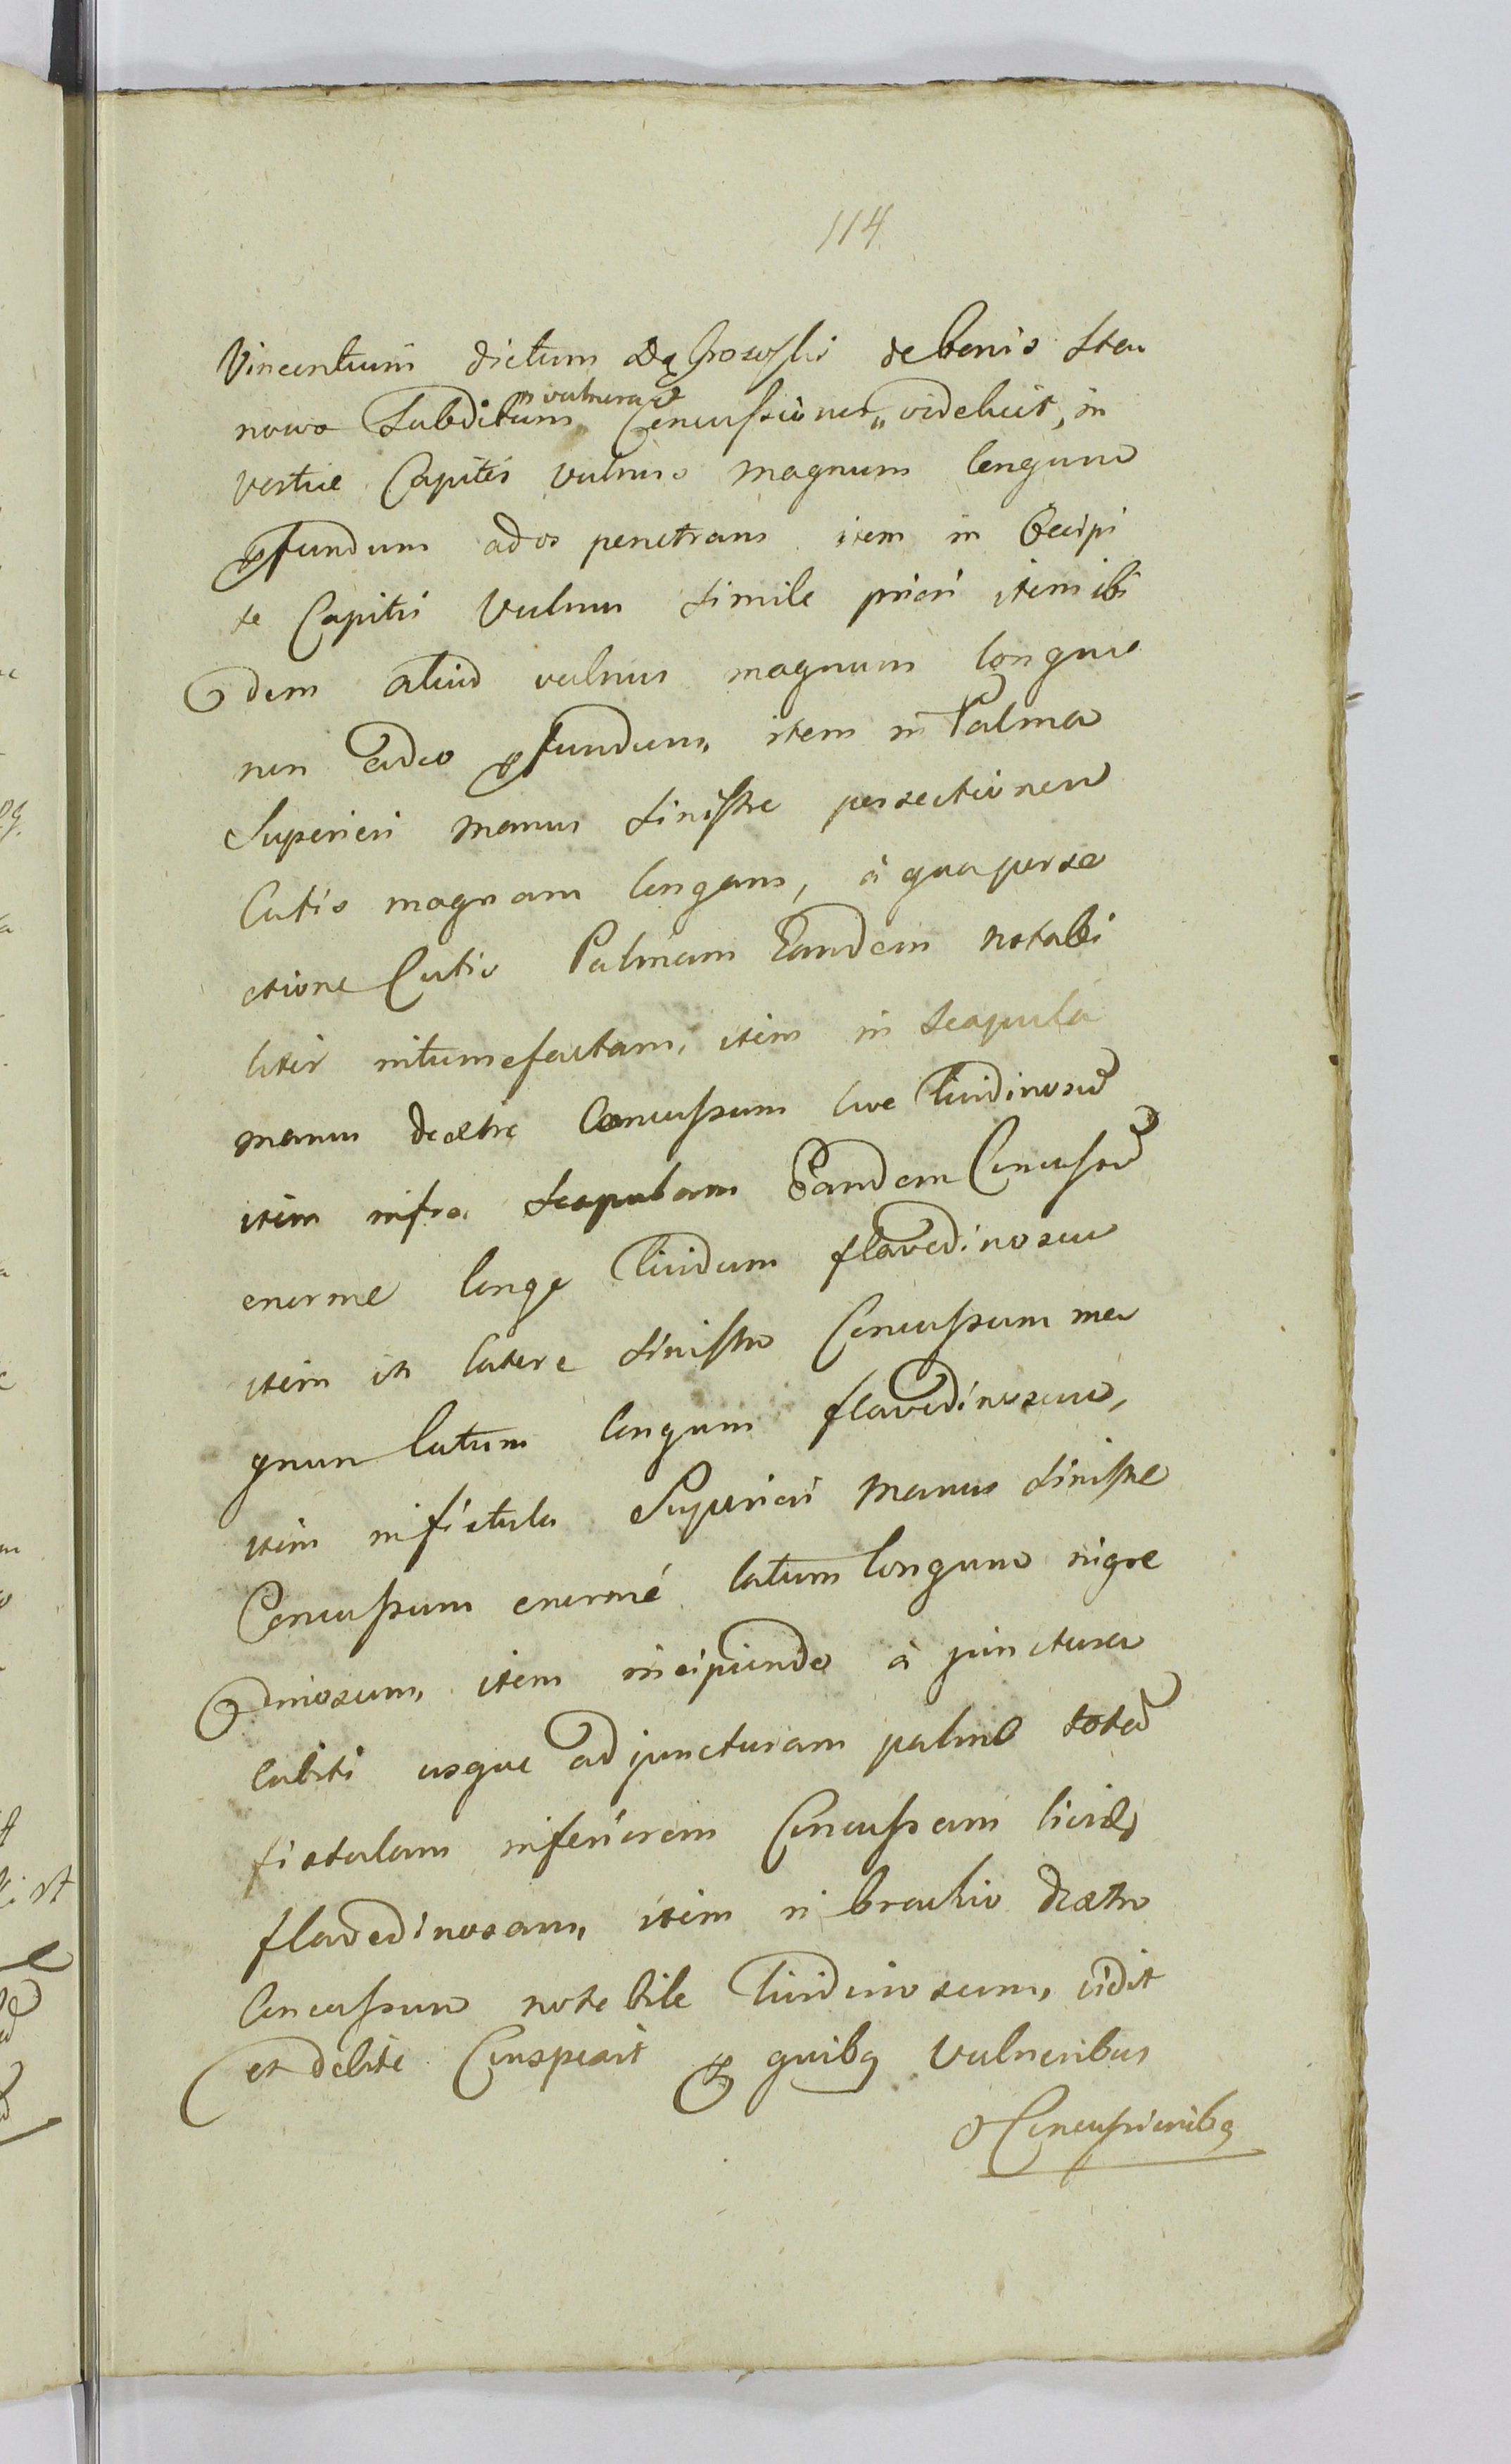 114.
Vincentium dictum Dąbrowski de bonis Sta
nowo Subditum in vulnera et Concussiones videlicet, in
vertice Capitis vulnus magnum longum
pfundum ad os penetrans item in Occipi
te Capitis Vulnus simile priori item ibi
dem aliud vulnus magnum longum
non adeo pfundum, item in Palma
Superiori manus sinistre persectionem
Cutis magnam longam, à qua perse
ctione Cutis Palmam Eandem notabi
liter intumefactam, item in scapula
manus dextre Concussum sive lividinosum
item infra scapulam Eandem Concussum
enorme longe lividum flavedinosum
item in latere sinistro Concussum ma
gnum latum longum flavedinosum,
item in fistula Superiori manus sinistre
Concussum enorme latum longum nigre
dinosum, item incipiendo à junctura
Cubiti usque ad juncturam palme totam
fistulam inferiorem Concussam livide
flavedinosam, item in brachio dextro
Concussum notabile lividinosum, vidit
et debite Conspexit P quibq vulneribus
et Concussionibq